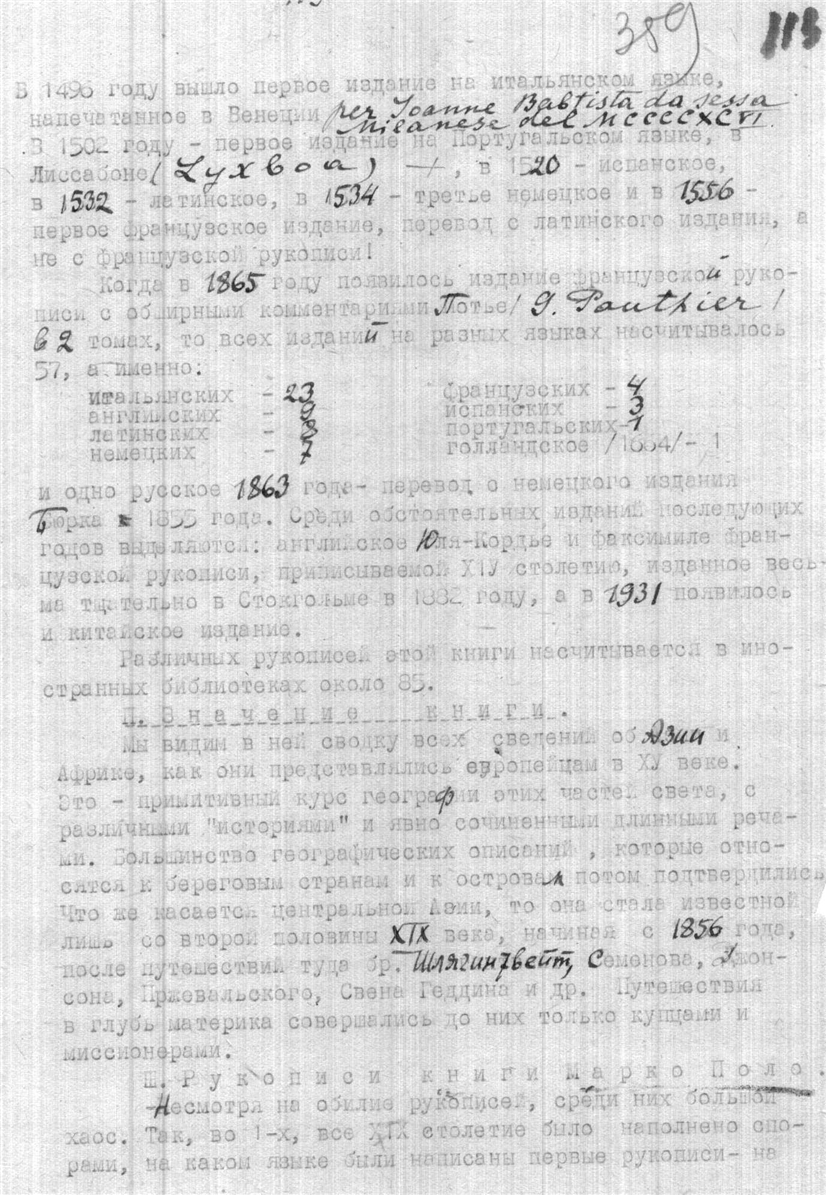 389 113
В 1496 году вышло первое издание на итальянском языке,
напечатанное в Венеции per Joanne Babtista da sessa
Milanese del MCCCCXCVI.
В 1502 году - первое издание на Португальском языке, в
Лиссабоне (Lyxboa) , в 1520 - испанское,
в 1532 - латинское, в 1534 - третье немецкое и в 1556 -
первое французское издание, перевод с латинского издания, а
не с французской рукописи!
Когда в 1865 году появилось издание французской руко-
писи с обширными комментариями Потье/ G. Pauthier /
в 2 томах, то всех изданий на разных языках насчитывалось
57, а именно:
итальянских - 23 французских - 4
английских - 9 испанских - 3
латинских - 8 португальских-1
немецких - 7 голландское /1664/- 1
и одно русское 1863 года- перевод с немецкого издания
Бюрка 1855 года. Среди обстоятельных изданий последующих
годов выделяются: английское Юля-Кордье и факсимиле фран-
цузской рукописи, приписываемой Х1У столетию, изданное весь-
ма тщательно в Стокгольме в 1882 году, а в 1931 появилось
и китайское издание.
Различных рукописей этой книги насчитывается в ино-
странных библиотеках около 85.
П. Значение книги.
Мы видим в ней сводку всех сведений об Азии и
Африке, как они представлялись европейцам в ХУ веке.
Это - примитивный курс географии этих частей света, с
различными "историями" и явно сочиненными длинными реча-
ми. Большинство географических описаний , которые отно-
сятся к береговым странам и к островам потом подтвердились
Что же касается центральной Азии, то она стала известной
лишь со второй половины XIX века, начиная с 1856 года,
после путешествий туда бр. Шлягинтвейт, Семенова, Джон-
сона, Пржевальского, Свена Геддина и др. Путешествия
в глубь материка совершались до них только купцами и
миссионерами.
Ш. Рукописи книги Марко Поло.
Несмотря на обилие рукописей, среди них большой
хаос. Так, во 1-х, все XIX столетие было наполнено спо-
рами, на каком языке были написаны первые рукописи- на